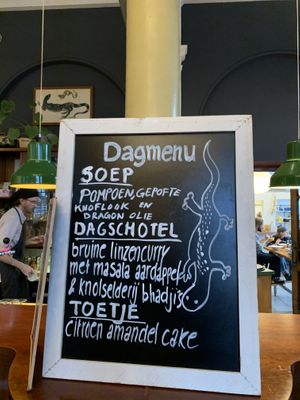 Dagmenu
SOEP
POMPOEN, GEPOFTE
KNOFLOOK EN
DRAGON OLIE
DAGSCHOTEL
bruine linzencurry
met masala aardappel
& knolselderij bhadji's
TOETJE
citroen amandel cake